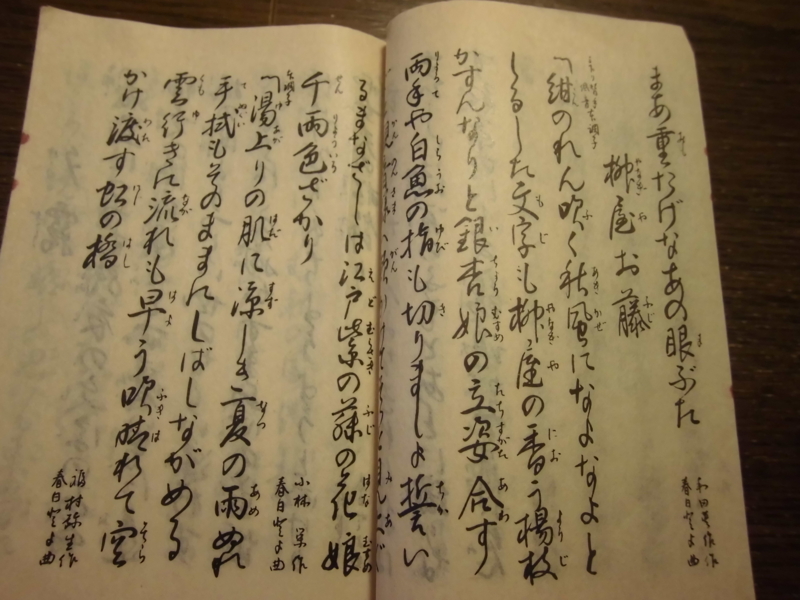 まあ重たげなあの眼ぶた
和田英作 作
春日とよ 曲
柳屋お藤
「紺のれん吹く秋風になよなよと
しるした文字も柳屋の香う楊枝
かすんなりと銀杏娘の立姿合す
両手や白魚の指も切りましよ誓い
るまなざしは江戸紫の藤の花娘
千両色ざかり
小林 栄 作
春日とよ 曲
「湯上りの肌に涼しき夏の雨ぬれ
手拭もそのままにしばしながめる
雲行きに流れも早う吹晴れて空
かけ渡す虹の橋
春日とよ 曲